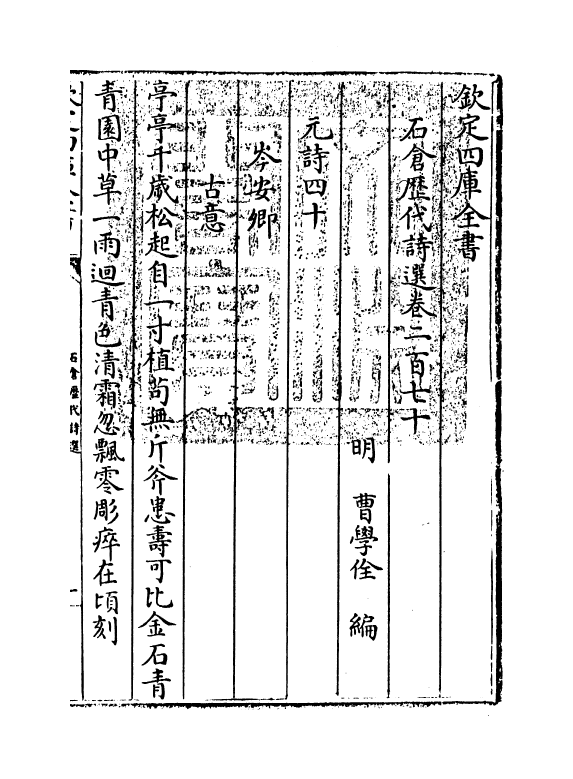 欽定四庫全書
石倉歷代詩選卷二百七十
明　曹學佺　編
元詩四十
岑安卿
古意
亭亭千歲松起自一寸植茍無斤斧患壽可比金石青
青園中草一雨迴青色清霜忽飄零彫瘁在頃刻
石倉歷代詩選